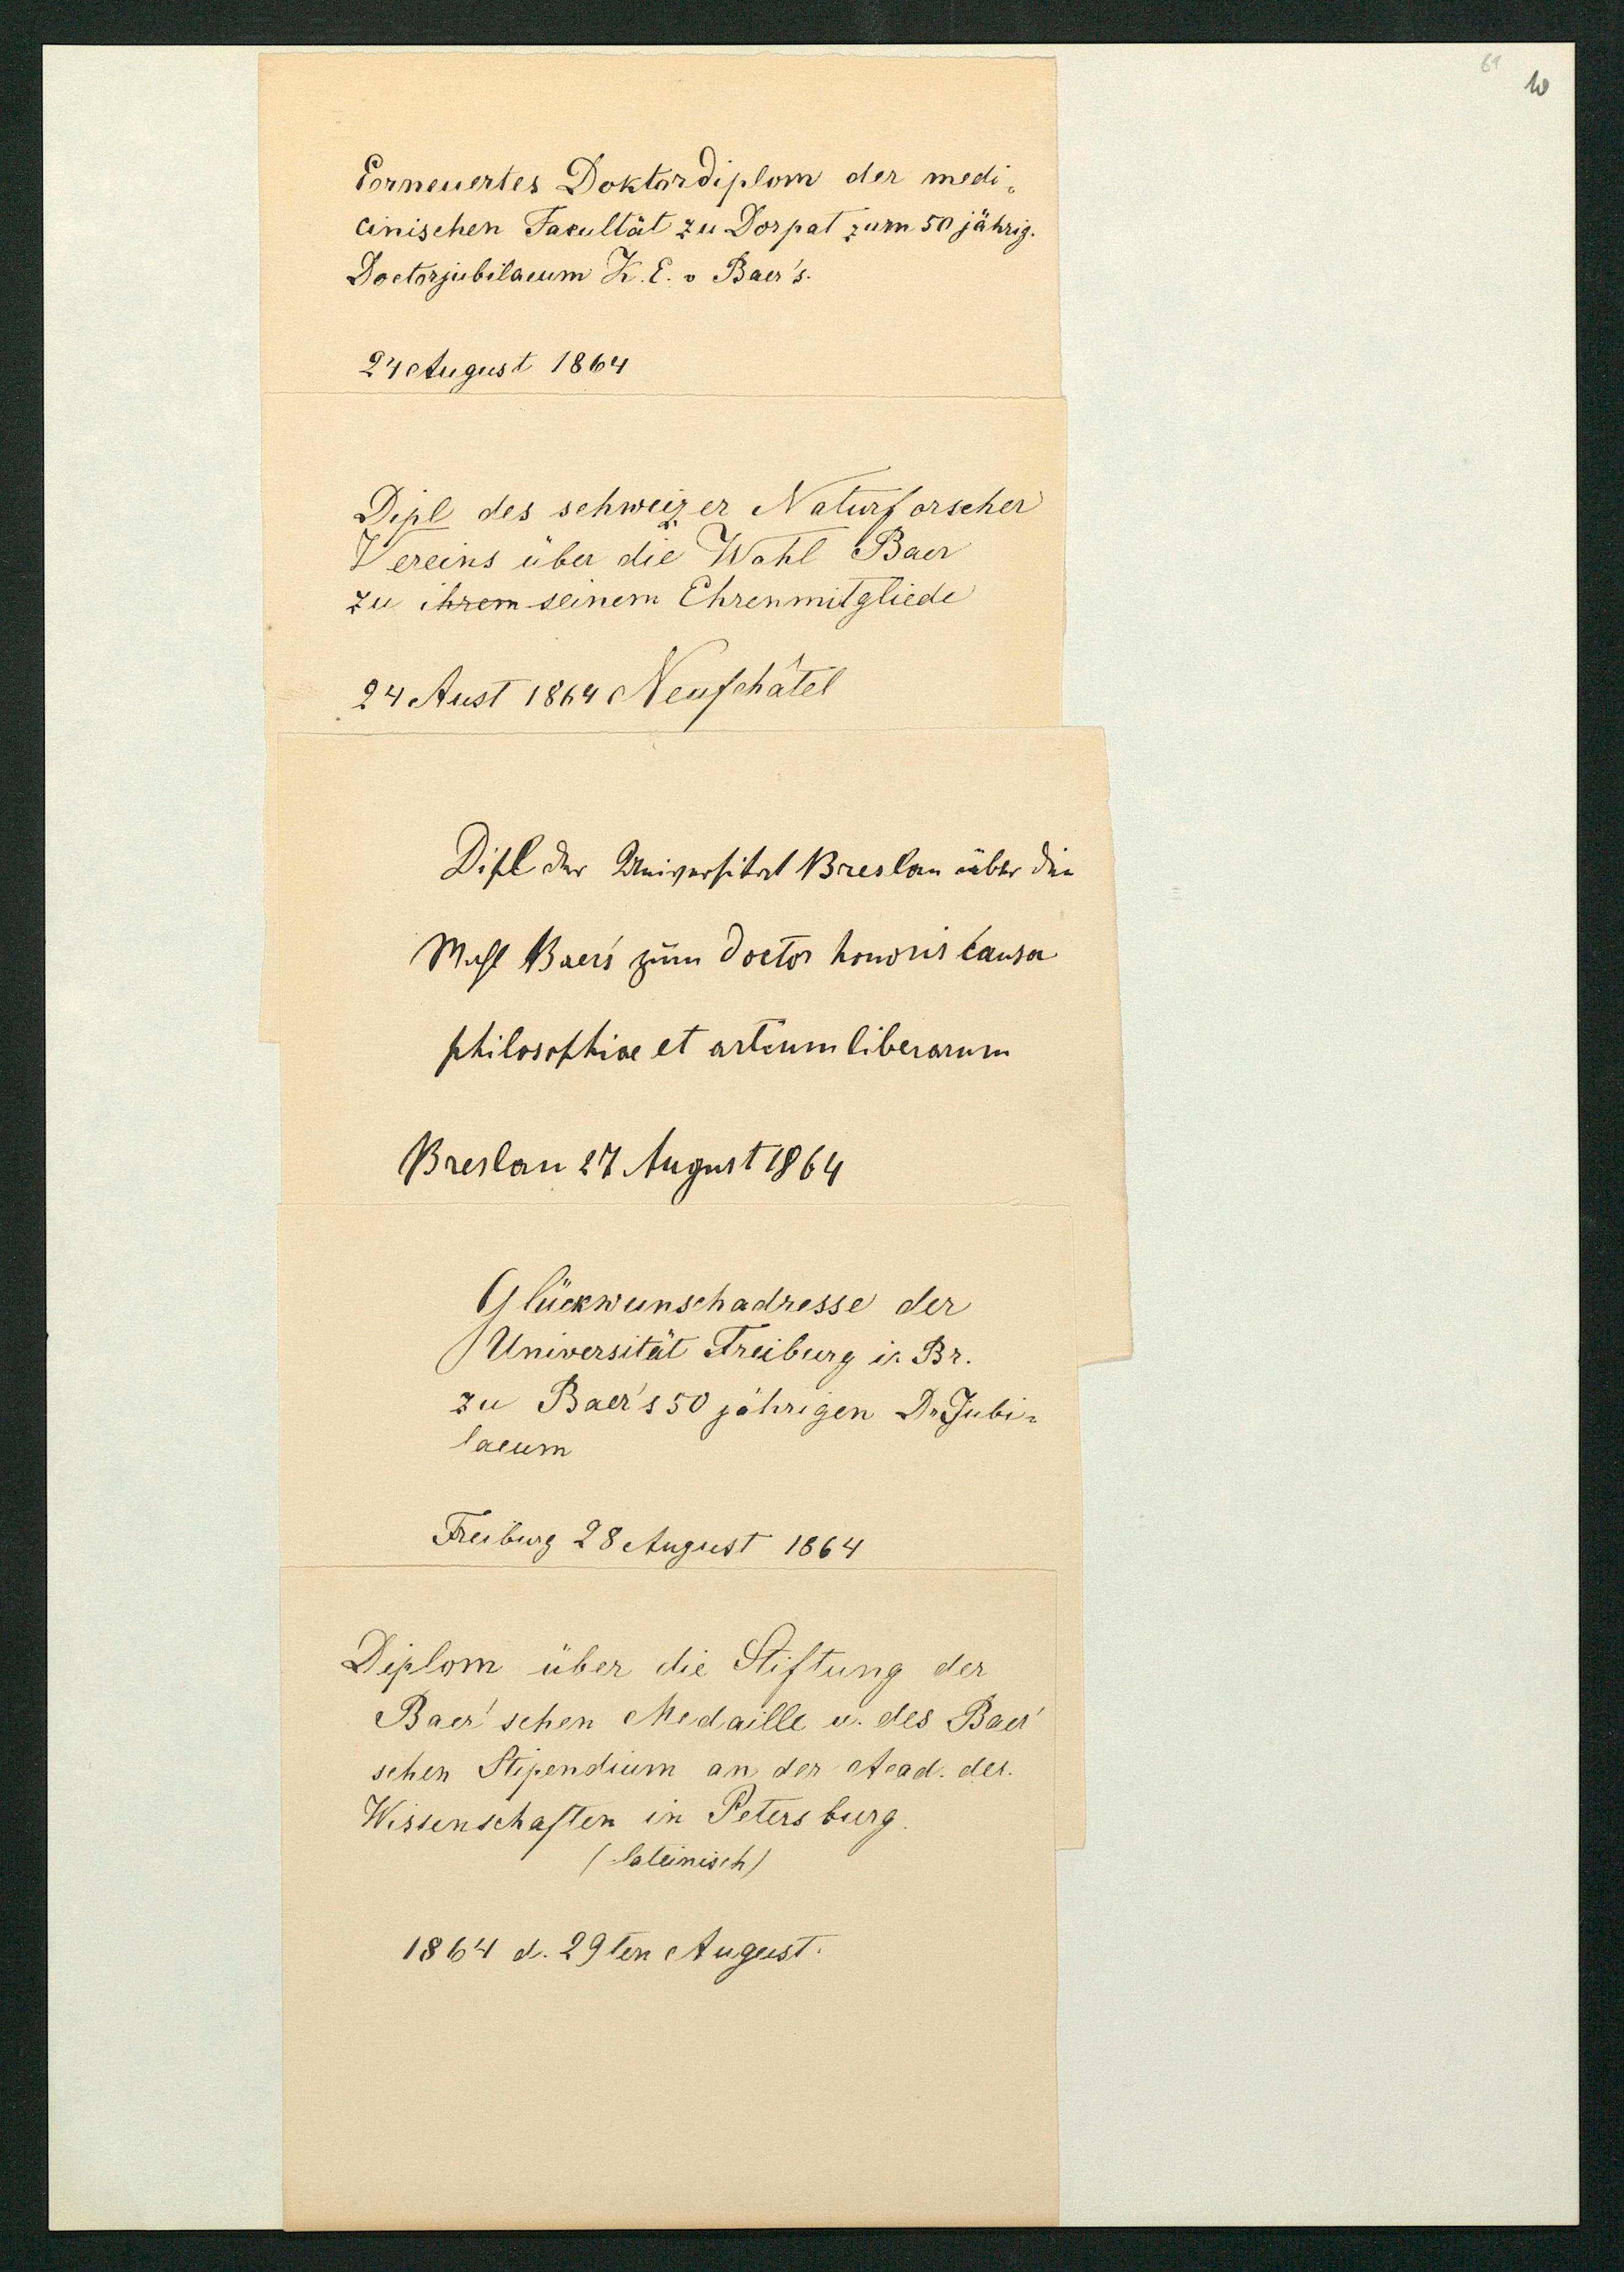 61
10
Erneuertes Doktordiplom der medi-
cinischen Facultät zu Dorpat zum 50 jährig.
Doctorjubilaeum K. E. v Baer's.
24 August 1864
Dipl des schweizer Naturforscher
Vereins über die Wahl Baer
zu ihrem seinem Ehrenmitgliede
24 Aust 1864 Neufchâtel
Dipl der Universität Breslau über die
Wahl Baer's zum Doctor honoris causa
philosophiae et artium liberarum
Breslau 27 August 1864
Glückwunschadresse der
Universität Freiburg i. Br.
zu Baer's 50 jährigen Dr Jubi-
laeum
Freiburg 28 August 1864
Diplom über die Stiftung der
Baer'schen Medaille u. des Baer'
schen Stipendium an der Acad. der.
Wissenschaften in Petersburg.
(lateinisch)
1864 d. 29ten August.